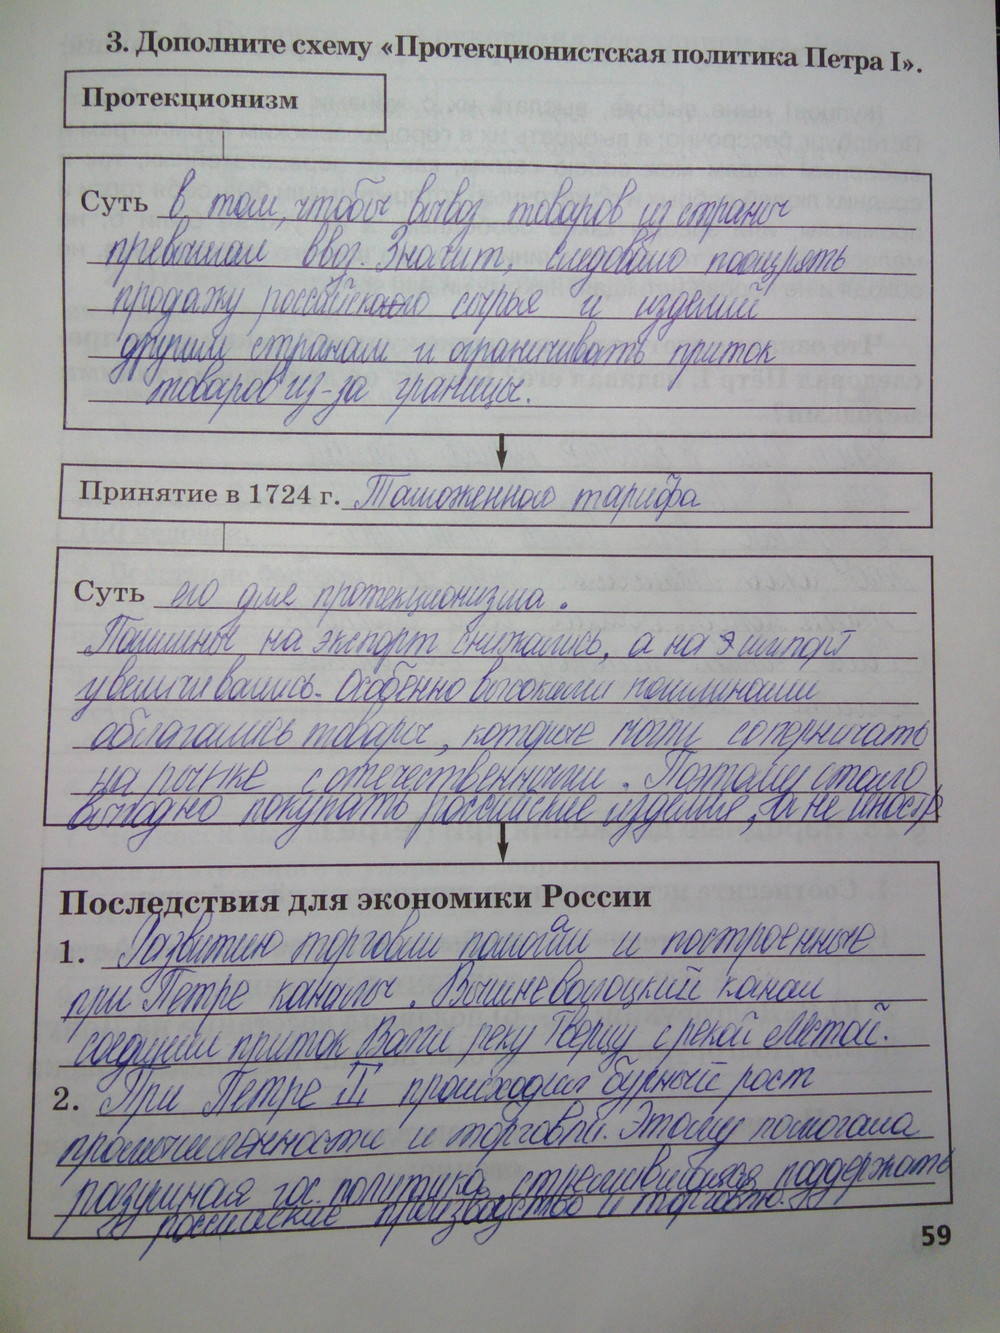 3. Дополните схему «Протекционистская политика Петра I».
Протекционизм
Суть в том, чтобы вывоз товаров из страны
превышал ввоз. Значит, следовало поощрять
продажу российского сырья и изделий
другим странам и ограничивать приток
товаров из-за границы.
Принятие в 1724 г. Таможенного тарифа
Суть его для протекционизма.
Пошлины на экспорт снижались, а на импорт
увеличивались. Особенно высокими пошлинами
облагались товары, которые могли соперничать
на рынке с отечественными. Поэтому стало
выгодно покупать российские изделия, а не иностр
Последствия для экономики России
1. Развитию торговли помогли и построенные
при Петре каналы. Вышневолоцкий канал
соединил приток Волги реку Тверцу с рекой Мстой.
2. При Петре I происходил бурный рост
промышленности и торговли. Этому помогала
разумная гос. политика, стремившаяся поддержать
российские производство и торговлю.
59